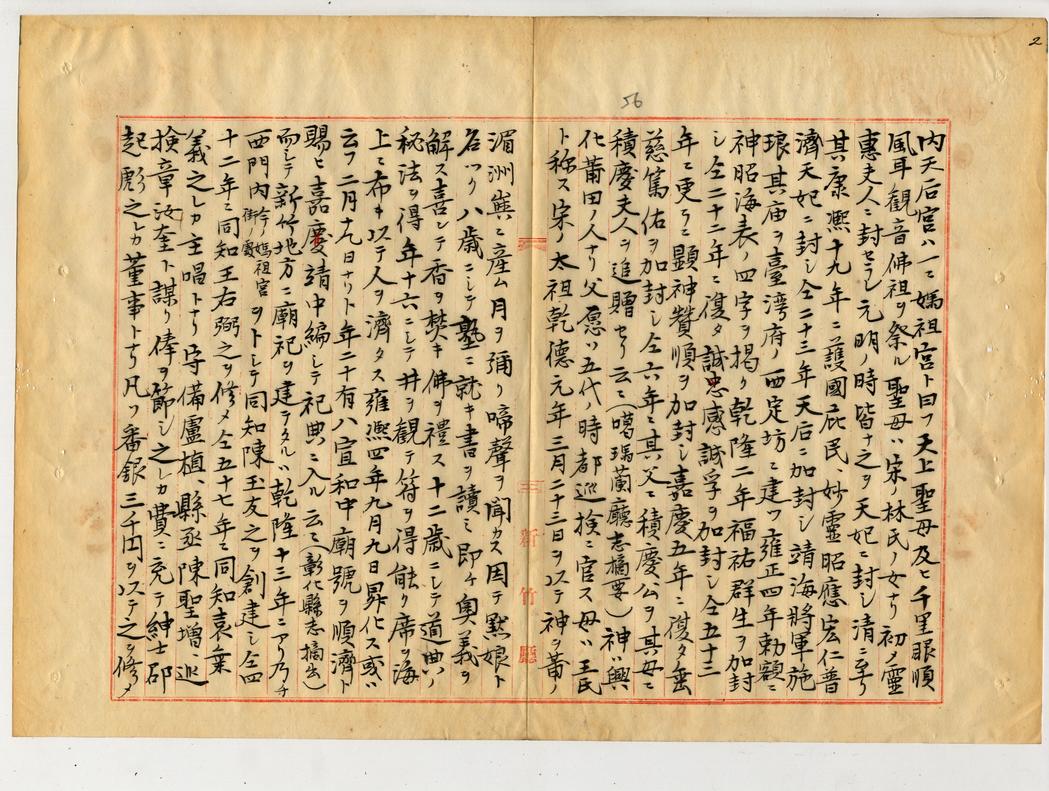 2
56
内天后宮ハ一ニ媽祖宮ト曰フ天上聖母及ヒ千里眼順
風耳観音佛祖ヲ祭ル聖母ハ宋ノ林氏ノ女ナリ初メ靈
惠夫人ニ封セラレ元明ノ時皆ナ之ヲ天妃ニ封シ清ニ至リ
其康熙十九年ニ護國庇民、妙靈昭應宏仁普
濟天妃ニ封シ仝二十三年天后ニ加封シ靖海將軍施
琅其庙ヲ臺湾府ノ西定坊ニ建ツ雍正四年勅額ニ
神昭海表ノ四字ヲ掲ケ乾隆二年福祐群生ヲ加封
シ仝二十二年ニ復タ誠忠感誠孚ヲ加封シ仝五十三
年ニ更ラニ顯神贊順ヲ加封シ嘉慶五年ニ復タ垂
慈篤佑ヲ加封シ仝六年ニ其父ニ積慶公ヲ其母ニ
積慶夫人ヲ追贈セリ云々(噶瑪蘭廳志摘要)神ハ興
化莆田ノ人ナリ父愿ハ五代ノ時都巡検ニ官ス母ハ王氏
ト称ス宋ノ太祖乾德元年三月二十三日ヲ以テ神ヲ莆ノ
新竹廳
湄洲嶼ニ産ム月ヲ彌リ啼聲ヲ聞カス因テ黙娘ト
名ツク八歳ニシテ塾ニ就キ書ヲ讀ミ即チ奥義ヲ
解ス喜シテ香ヲ焚キ佛ヲ禮ス十二歳ニシテ道典ノ
秘法ヲ得年十六ニシテ井ヲ観テ符ヲ得能ク席ヲ海
上ニ布キ以テ人ヲ濟タス雍熙四年九月九日昇化ス或ハ
云フ二月十九日ナリト年二十有八宣和中廟號ヲ順濟ト
賜ヒ嘉慶靖中編シテ祀典ニ入ル云々(彰化縣志摘出)
而シテ新竹地方ニ廟祀ヲ建テタルハ乾隆十三年ニアリ乃チ
西門内今ノ媽祖宮街ノ處ヲトシテ同知陳玉友之ヲ創建シ仝四
十二年ニ同知王右弼之ヲ修メ仝五十七年ニ同知袁秉
義之レカ主唱トナリ守備盧植、縣丞陳聖增巡
検章汝奎ト謀リ俸ヲ節シ之レカ費ニ充テ紳士邵
起彪之レカ董事トナリ凡ソ番銀三千円ヲ以テ之ヲ修メ